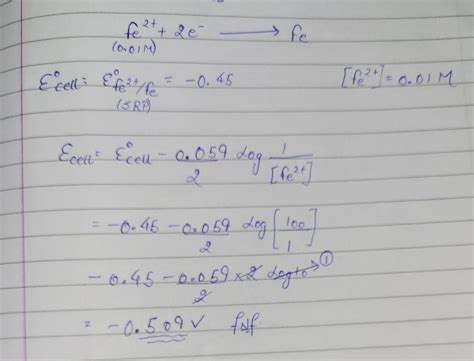 fe²⁺ + 2e⁻ ⟶ fe
(0.01M)
Ɛ°cell = Ɛ°fe²⁺/fe = -0.45 [fe²⁺] = 0.01 M
(SRP)
Ɛcell = Ɛ°cell - 0.059/2 log 1/[fe²⁺]
= -0.45 - 0.059/2 log [100/1]
- 0.45 - 0.059/2 × 2 log10 → ①
= -0.509 V